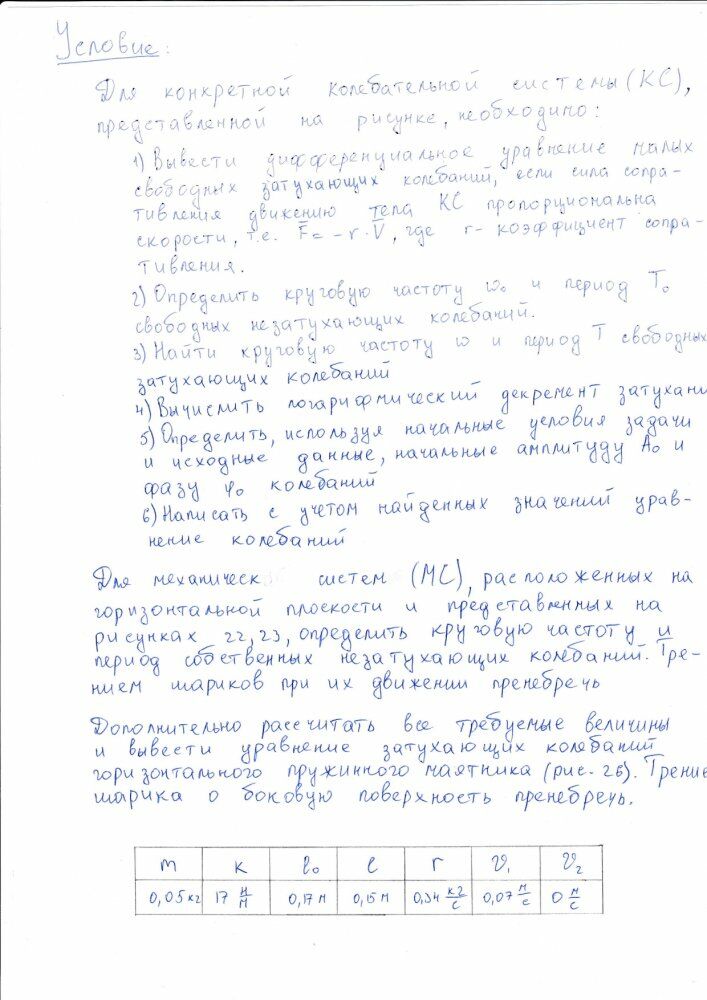 Условие:
Для конкретной колебательной системы (КС),
представленной на рисунке, необходимо:
1) Вывести дифференциальное уравнение малых
свободных затухающих колебаний, если сила сопро-
тивления движению тела КС пропорциональна
скорости, т.е. F̄ = -r · V̄, где r - коэффициент сопро-
тивления.
2) Определить круговую частоту ω₀ и период T₀
свободных незатухающих колебаний.
3) Найти круговую частоту ω и период T свободных
затухающих колебаний
4) Вычислить логарифмический декремент затухани
5) Определить, используя начальные условия задачи
и исходные данные, начальные амплитуду A₀ и
фазу φ₀ колебаний
6) Написать с учетом найденных значений урав-
нение колебаний
Для механическ систем (МС), расположенных на
горизонтальной плоскости и представленных на
рисунках 22, 23, определить круговую частоту и
период собственных незатухающих колебаний. Тре-
нием шариков при их движении пренебречь
Дополнительно рассчитать все требуемые величины
и вывести уравнение затухающих колебаний
горизонтального пружинного маятника (рис. 26). Трение
шарика о боковую поверхность пренебречь.
m k l₀ l r v₁ v₂
0,05 кг 17 Н/м 0,17 м 0,15 м 0,34 кг/с 0,07 м/с 0 м/с